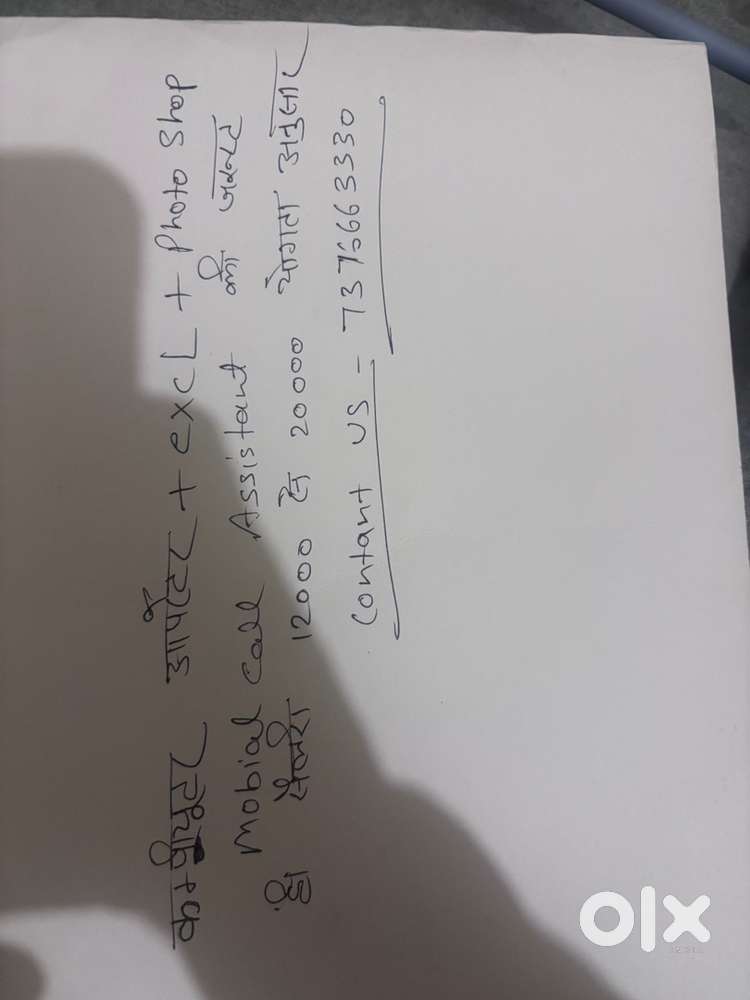 कम्प्यूटर ऑपरेटर + excl + Photo Shop
Mobial Call Assistant की जरूरत
है सैलरी 12000 से 20000 योग्यता अनुसार
Contant US - 7375663330
olx